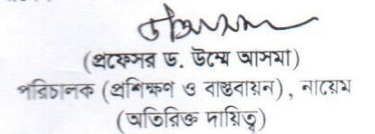 (প্রফেসর ড. উম্মে আসমা)
পরিচালক (প্রশিক্ষণ ও বাস্তবায়ন), নায়েম
(অতিরিক্ত দায়িত্ব)